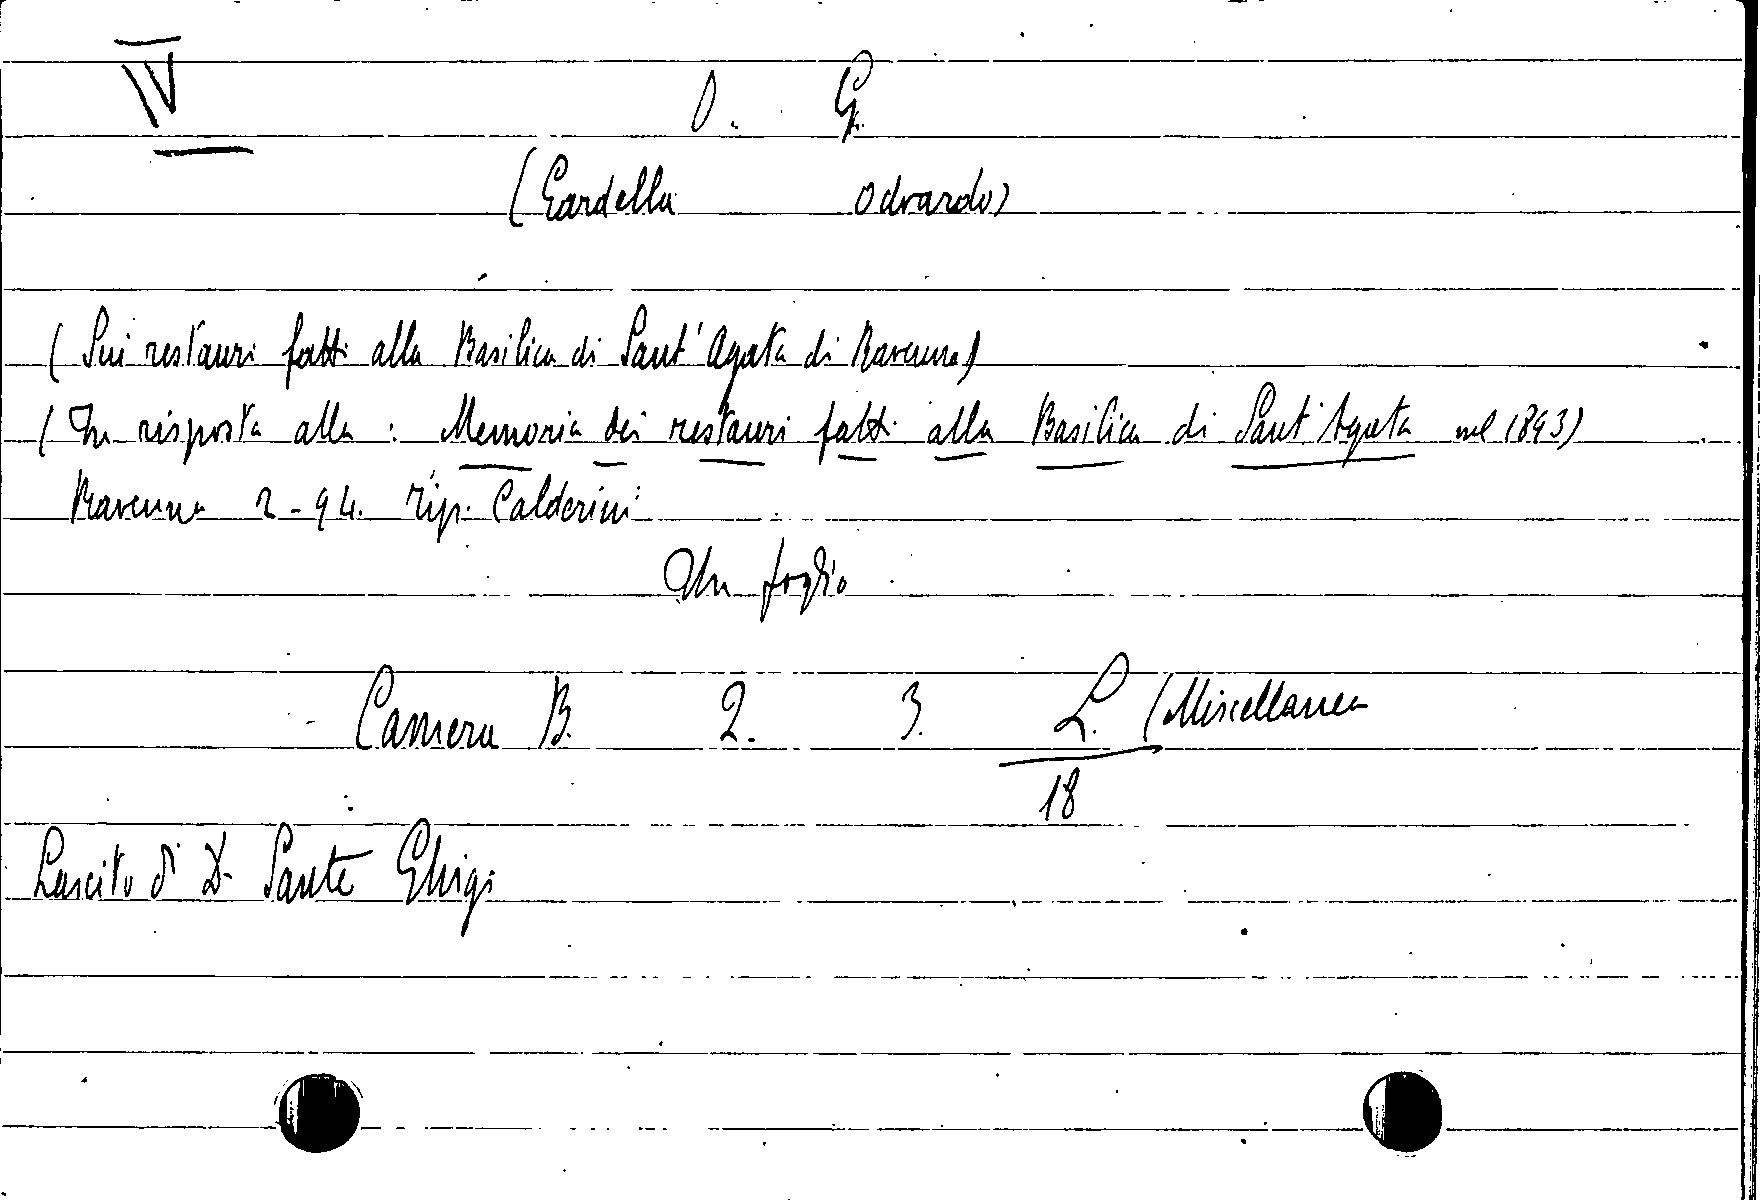 IV
O. G.
(Gardella Odoardo)
(Sui restauri fatti alla Basilica di Sant'Agata di Ravenna)
(In risposta alla: Memoria dei restauri fatti alla Basilica di Sant'Agata nel 1893)
Ravenna 2-94. Tip. Calderini
Un foglio
Camera B. 2. 3. L. (Miscellanea
18
Lascito di D. Sante Ghigi